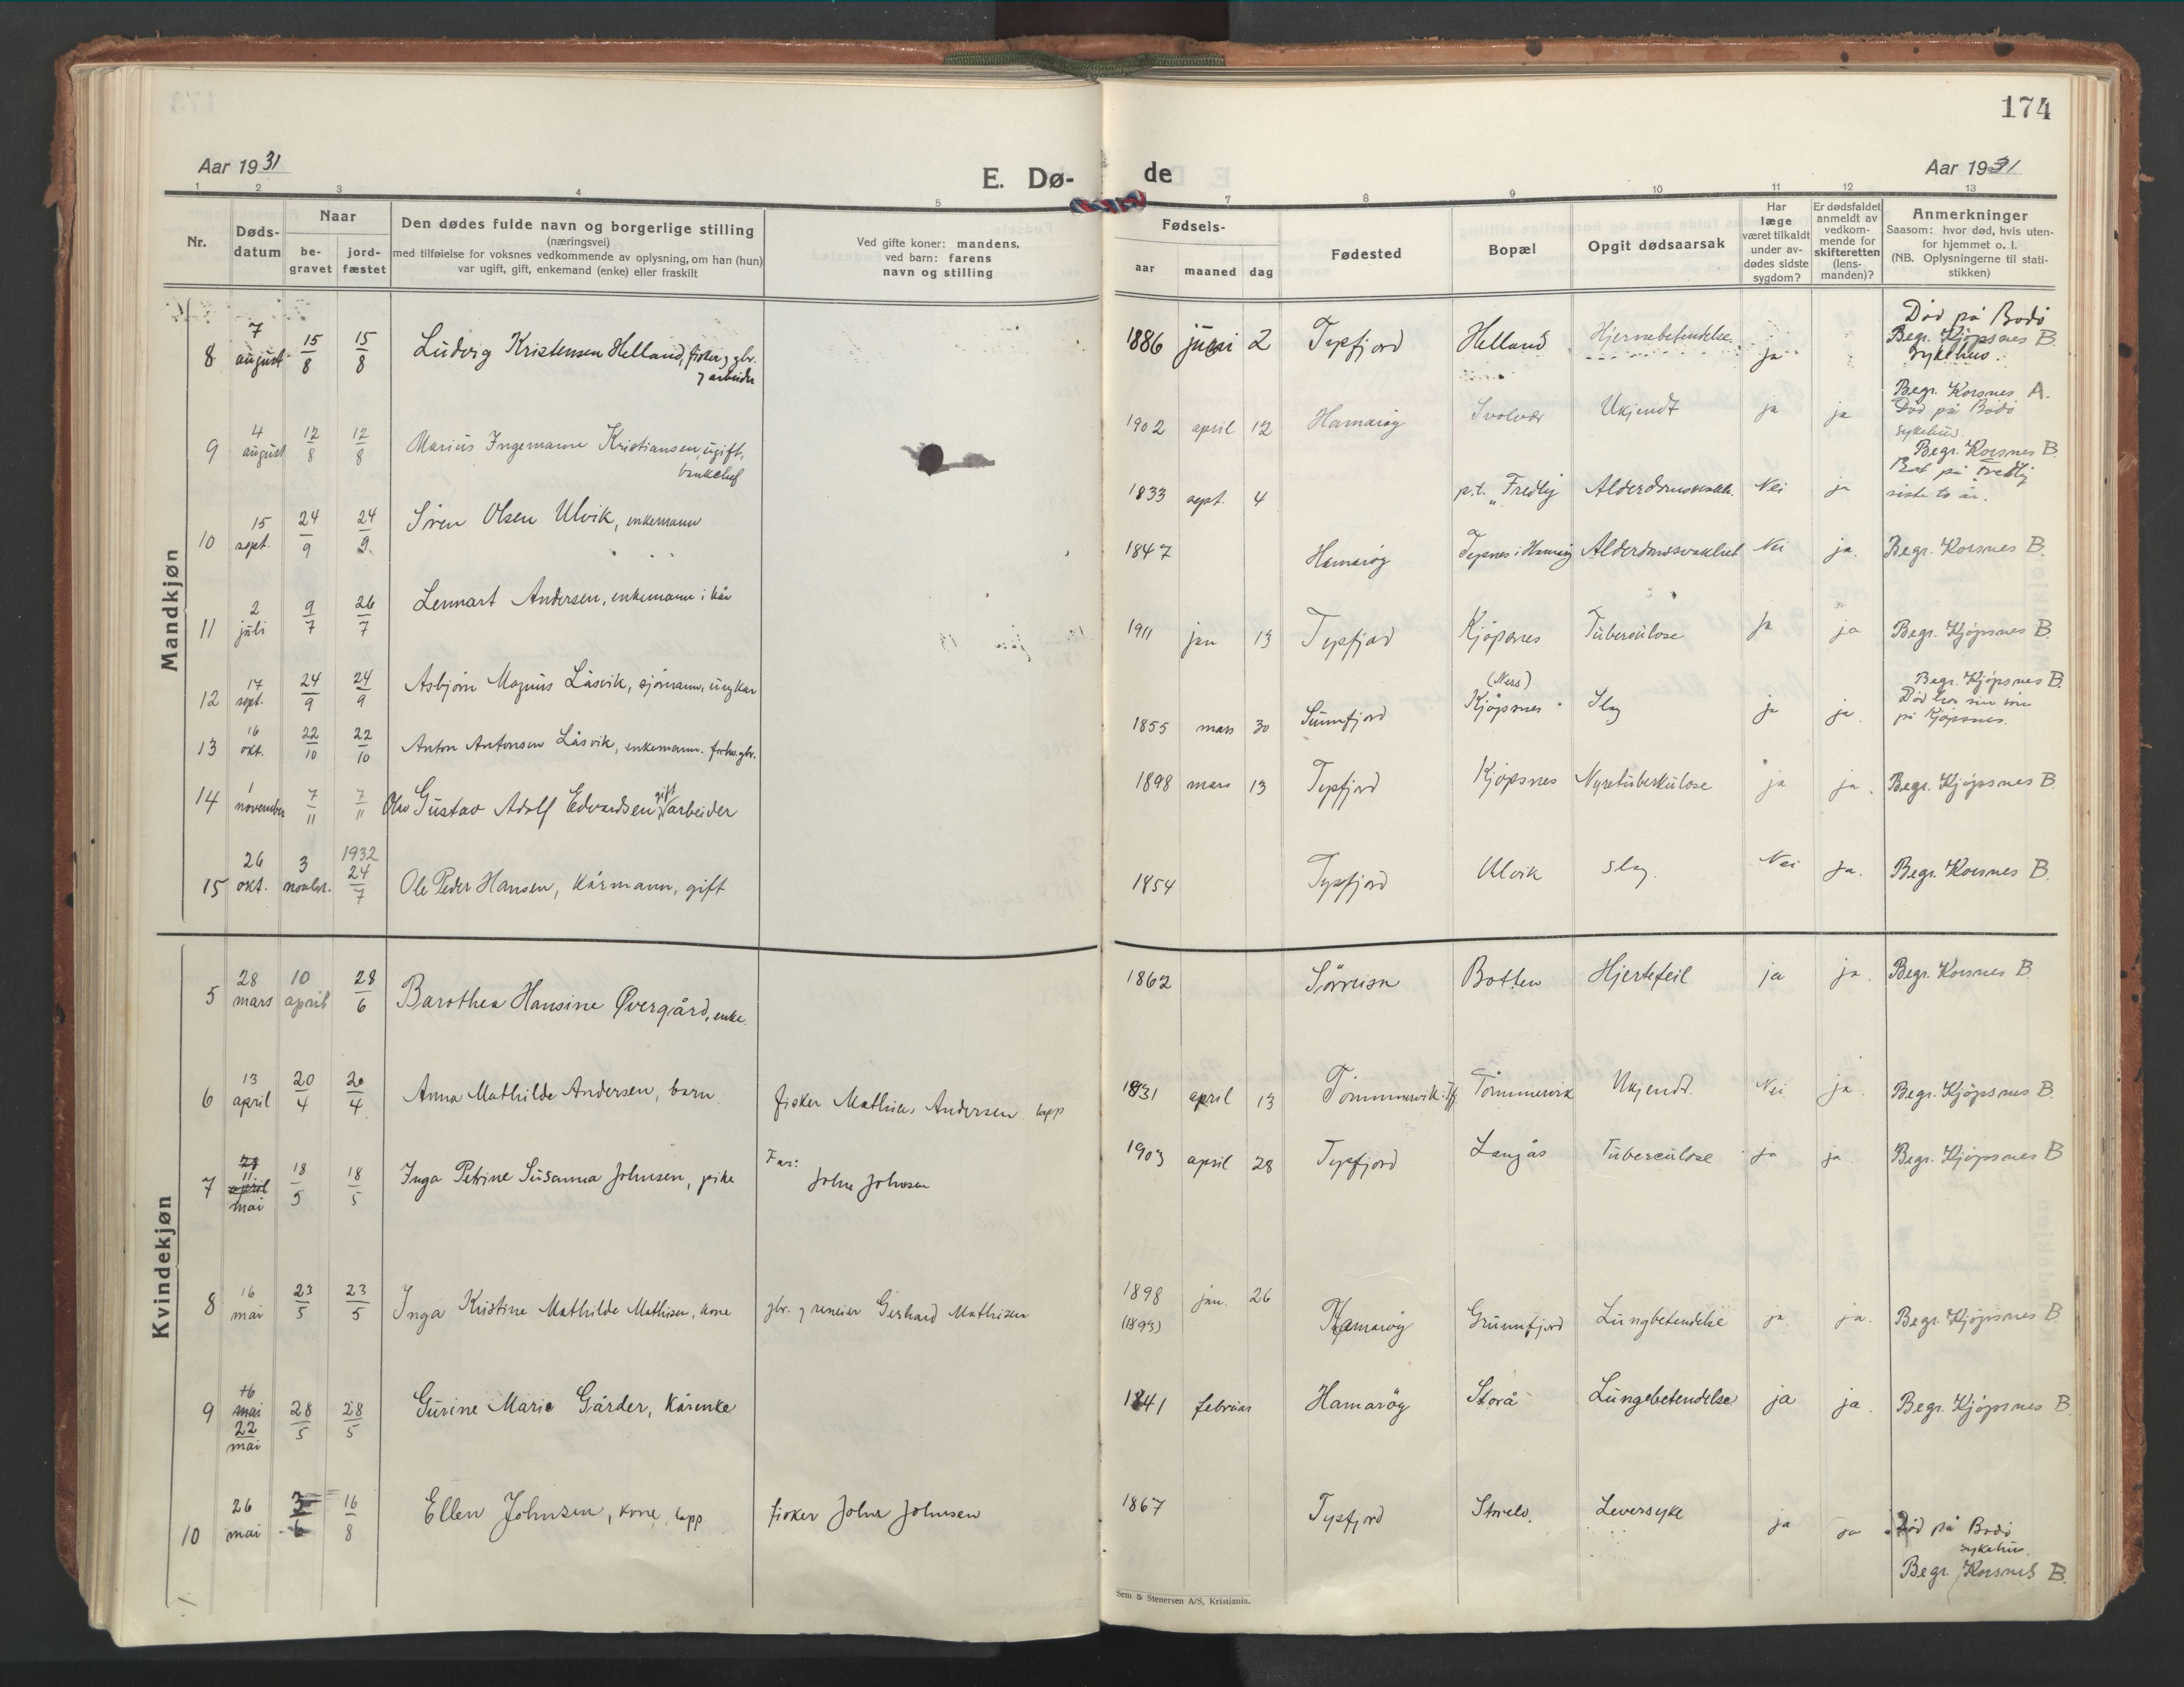 174
Aar 1931
E. Dø-
de
Aar 1931
1 2 3 4 5 7 8 9 10 11 12 13
Nr.
Døds-
datum
Naar
be-
gravet
jord-
fæstet
Den dødes fulde navn og borgerlige stilling
(næringsvei)
med tilføielse for voksnes vedkommende av oplysning, om han (hun)
var ugift, gift, enkemand (enke) eller fraskilt
Ved gifte koner: mandens,
ved barn: farens
navn og stilling
Fødsels-
aar maaned dag
Fødested
Bopæl
Opgit dødsaarsak
Har
læge
været tilkaldt
under av-
dødes sidste
sygdom?
Er dødsfaldet
anmeldt av
vedkom-
mende for
skifteretten
(lens-
manden)?
Anmerkninger
Saasom: hvor død, hvis uten-
for hjemmet o. l.
(NB. Oplysningerne til stati-
stikken)
Mandkjøn
8 7 august 15/8 15/8 Ludvig Kristensen Helland, fisker, gbr.
og arbeider
1886 juni 2 Tysfjord Helland Hjernebetendelse ja
Død på Bodö
Begr. Kjöpsnes B.
Sykehus.
9 4 august 12/8 12/8 Marius Ingemann Kristiansen, ugift,
1902 april 12 Hamaröy Svolvær Ukjendt ja ja
Begr. Korsnes A.
Död på Bodö
sykehus.
10 15 sept. 24/9 24/9 Sören Olsen Ulvik, enkemann
1833 sept. 4 p.t. "Fredly Alderdomssvakh. Nei ja
Begr. Korsnes B.
Bod på Fredly
siste to år.
11 2 juli 9/7 26/7 Lennart Andersen, enkemann i kår
1847 Hamaröy i Hamaröy Alderdomssvakhet Nei ja.
Begr. Korsnes B.
12 17 sept. 24/9 24/9 Asbjörn Magnus Låsvik, sjömann, ungkar
1911 jan 13 Tysfjord Kjöpsnes Tuberculose ja ja
Begr. Kjöpsnes B.
13 16 okt. 22/10 22/10 Anton Antonsen Låsvik, enkemann. forhv. gbr.
1855 mars 30 Sunnfjord (Ners) Kjöpsnes Slag ja ja.
Begr. Kjöpsnes B.
Död hos sin sön
på Kjöpsnes.
14 1 november 7/11 7/11 Olav Gustav Adolf Edvardsen gift arbeider
1898 mars 13 Tysfjord Kjöpsnes Nyretuberkulose ja ja.
Begr. Kjöpsnes B.
15 26 okt. 3 novbr. 1932 24/7 Ole Peder Hansen, kårmann, gift
1854 Tysfjord Ulvik slag. Nei ja.
Begr. Korsnes B.
Kvindekjøn
5 28 mars 10 april 28/6 Barothea Hansine Øvergård, enke.
1862 Sörreisa Botten Hjertefeil ja ja.
Begr. Korsnes B
6 13 april 20/4 20/4 Anna Mathilde Andersen, barn
fisker Mathias Andersen lapp
1931 april 13 Tömmervik i Tfj. Tömmervik Ukjendt. Nei ja.
Begr. Kjöpsnes B.
7 28 april 11 mai 18/5 18/5 Inga Petrine Susanna Johnsen, pike
Far:
John Johnsen
1903 april 28 Tysfjord Langås Tuberculose ja ja.
Begr. Kjöpsnes B
8 16 mai 23/5 23/5 Inga Kristine Mathilde Mathisen, kone
gbr. og reneier Gerhard Mathisen
1898 (1893) jan. 26 Hamaröy Grunnfjord Lungbetendelse ja ja.
Begr. Kjöpsnes B.
9 16 mai 22 mai 28/5 28/5 Gurine Marie Gårder, kårenke
1841 februar Hamaröy Storå Lungebetendelse ja ja.
Begr. Kjöpsnes B.
10 26 mai 3/6 16/8 Ellen Johnsen, kone, lapp
fisker John Johnsen
1867 Tysfjord Storelv. Leversyke ja ja
Död på Bodö
sykehus.
Begr. Korsnes B.
Sem & Stenersen A/S, Kristiania.